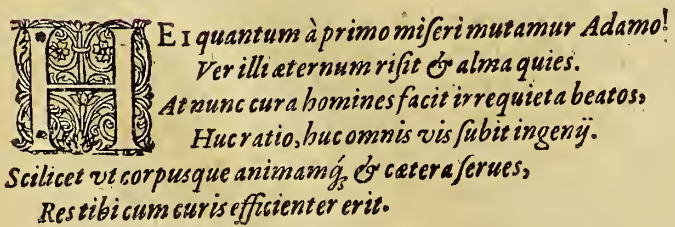 HEI quantum à primo miſeri mutamur Adamo!
Ver illi æternum riſit & alma quies.
At nunc cura homines facit irrequieta beatos,
Huc ratio, huc omnis vis ſubit ingenij.
Scilicet vt corpusque animamq́; & cætera ſerues,
Res tibi cum curis efficienter erit.